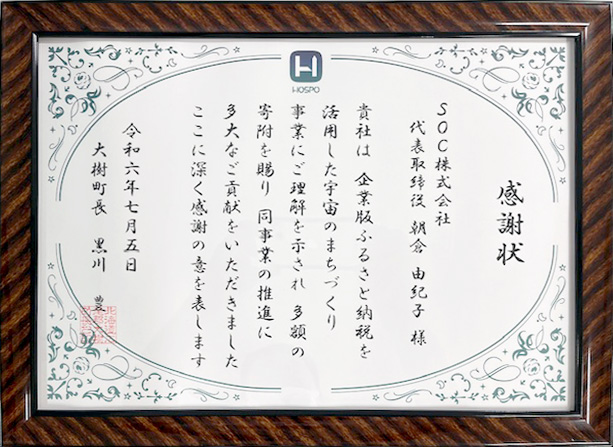 HOSPO
感謝状
SOC株式会社
代表取締役 朝倉 由紀子 様
貴社は 企業版ふるさと納税を
活用した宇宙のまちづくり
事業にご理解を示され 多額の
寄附を賜り 同事業の推進に
多大なご貢献をいただきました
ここに深く感謝の意を表します
令和六年七月五日
大樹町長 黒川 豊